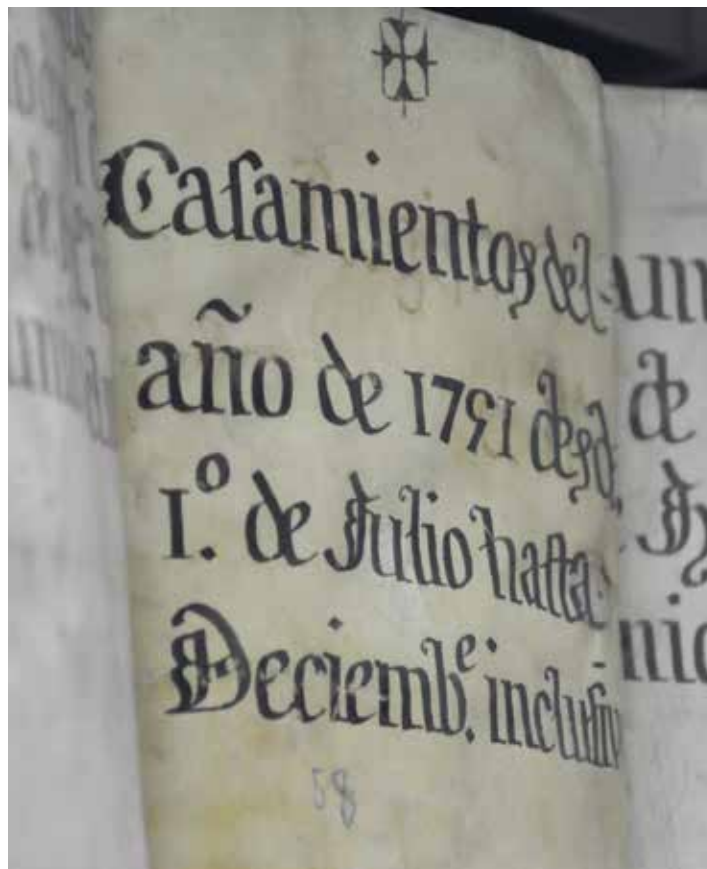 Casamientos del
año de 1791 desd.
1.º de Julio hasta
Deciemb.ᵉ inclusiv
58